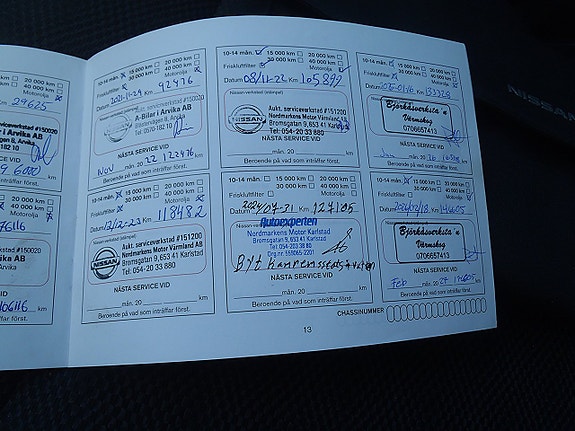 20 000 km
40 000 km
Motorolja
29625
#150020
i Arvika AB
B, Arvika
182 10
VID
km
inträffar först.
20 000 km
40 000 km
Motorolja
76116
#150020
Arvika AB
VID
106116 km
inträffar först.
10-14 mån. 15 000 km 20 000 km
30 000 km 40 000 km
Friskluftfilter Motorolja
Datum 2021-11-29 Km 92476
Aukt. serviceverkstad #150020
A-Bilar i Arvika AB
Arvika
Tel: 0570-182 10
NÄSTA SERVICE VID
Nov mån. 20 22 122476 km
Beroende på vad som inträffar först.
10-14 mån. 15 000 km 20 000 km
30 000 km 40 000 km
Friskluftfilter Motorolja
Datum 12/12-23 Km 118482
Nissan-verkstad (stämpel)
NISSAN
Aukt. serviceverkstad #151200
Nordmarkens Motor Värmland AB
Bromsgatan 9, 653 41 Karlstad
Tel: 054-20 33 880
NÄSTA SERVICE VID
mån. 20 km
Beroende på vad som inträffar först.
10-14 mån. 15 000 km 20 000 km
30 000 km 40 000 km
Friskluftfilter Motorolja
Datum 08/11-22 Km 105892
Nissan-verkstad (stämpel)
NISSAN
Aukt. serviceverkstad #151200
Nordmarkens Motor Värmland AB
Bromsgatan 9, 653 41 Karlstad
Tel: 054-20 33 880
NÄSTA SERVICE VID
mån. 20 km
Beroende på vad som inträffar först.
10-14 mån. 15 000 km 20 000 km
30 000 km 40 000 km
Friskluftfilter Motorolja
Datum 2024/07-31 Km 127105
Autoexperten
Nordmarkens Motor Karlstad
Bromsgatan 9, 653 41 Karlstad
Tel: 054-203 38 80
Org.nr. 559065-2201
Byt kamrem
NÄSTA SERVICE VID
mån. 20 km
Beroende på vad som inträffar först.
10-14 mån. 15 000 km 20 000 km
30 000 km 40 000 km
Friskluftfilter Motorolja
Datum Km
Nissan-verkstad (stämpel)
Björkåsverksta´n
Värmskog
0706657413
NÄSTA SERVICE VID
Jan mån. 20 26 km
Beroende på vad som inträffar först.
10-14 mån. 15 000 km 20 000 km
30 000 km 40 000 km
Friskluftfilter Motorolja
Datum Km
Nissan-verkstad (stämpel)
Björkåsverksta´n
Värmskog
0706657413
NÄSTA SERVICE VID
Feb mån. 20 27 km
Beroende på vad som inträffar först.
13
CHASSINUMMER
NISSAN